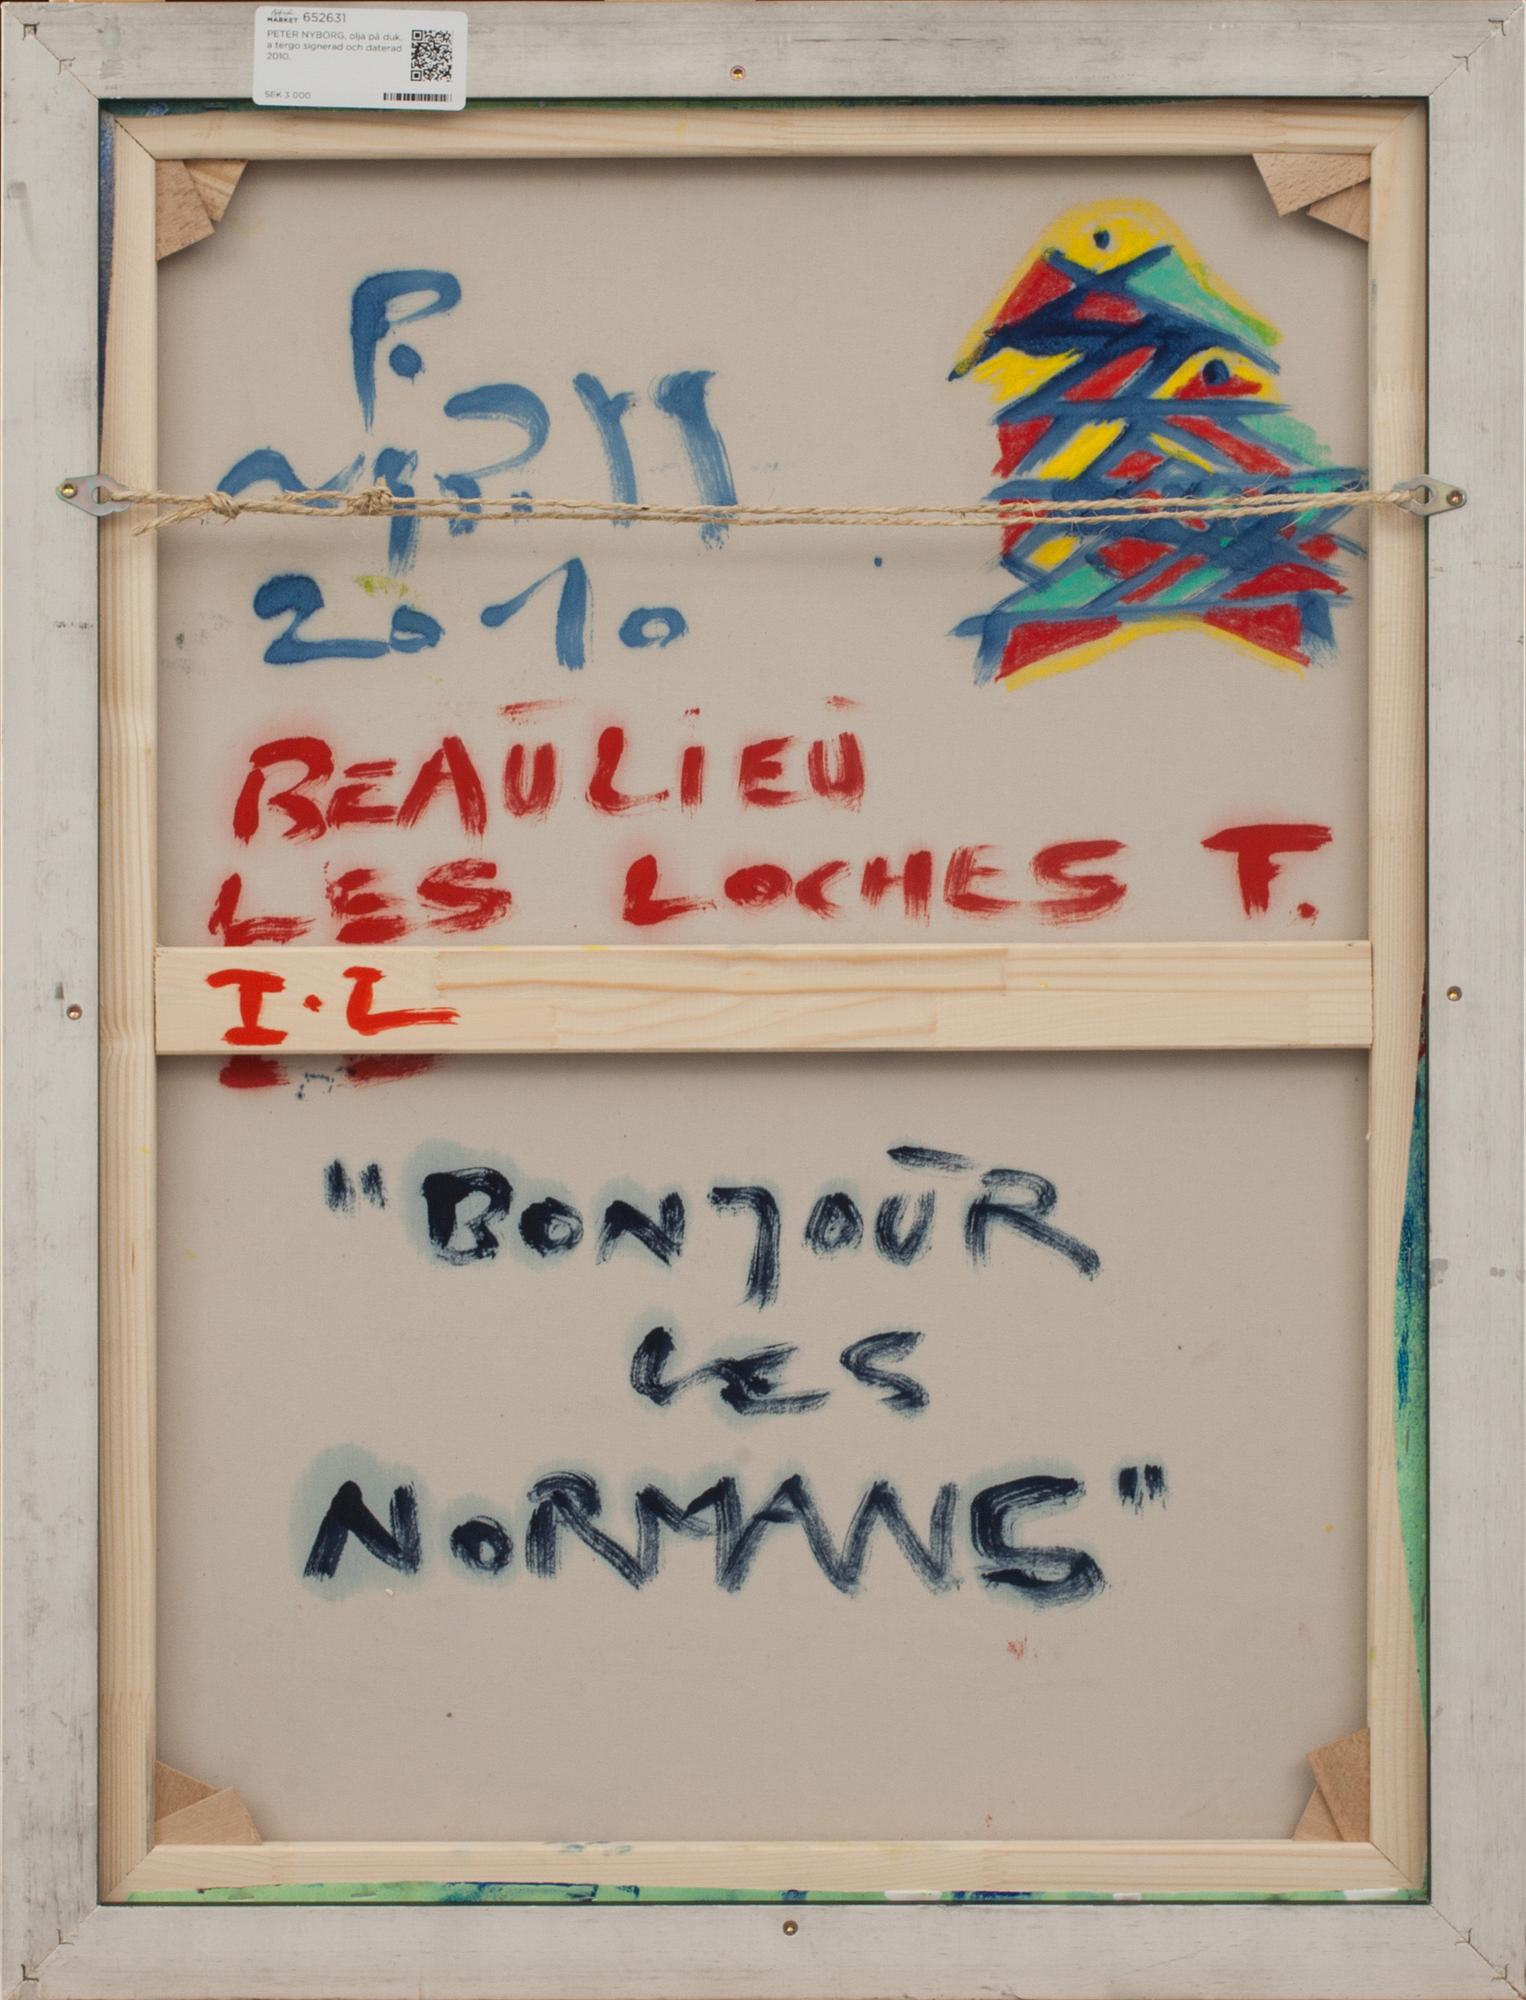 MARKET 652631
PETER NYBORG, olja på duk,
a tergo signerad och daterad
2010.
SEK 3 000
P.
2010
BEAŪLIEŪ
LES LOCHES T.
I.L
"BONJOŪR
LES
NORMANS"